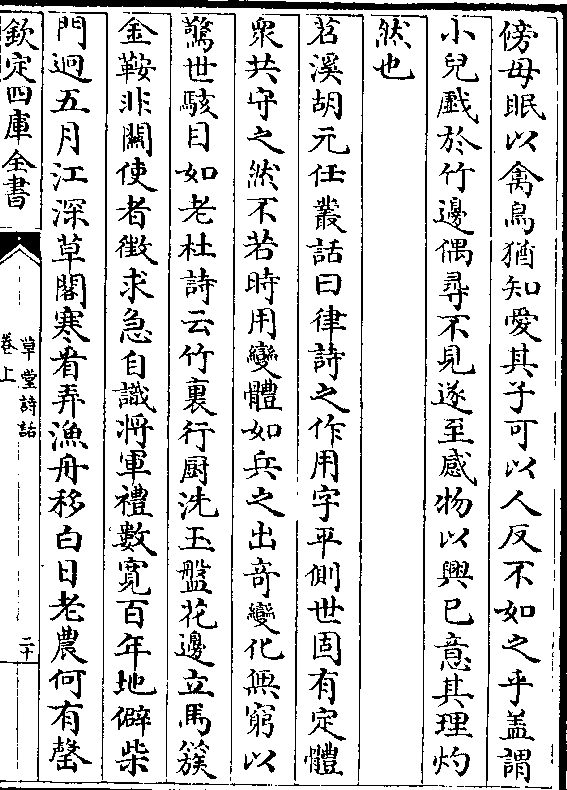 傍母眠以禽鳥猶知愛其子可以人反不如之乎盖謂
小兒戲於竹邊偶尋不見遂至感物以興已意其理灼
然也
苕溪胡元任叢話曰律詩之作用字平側世固有定體
衆共守之然不若時用變體如兵之出奇變化無窮以
驚世駭目如老杜詩云竹裏行厨洗玉盤花邊立馬簇
金鞍非關使者徵求急自識將軍禮數寛百年地僻柴
門迥五月江深草閣寒看弄漁舟移白日老農何有罄
欽定四庫全書
草堂詩話
卷上
二十